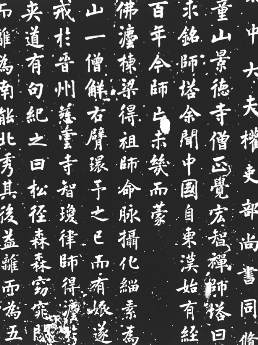 中大夫權吏部尚書同脩
童山景德寺僧正覺宏智禪師塔曰
求銘師塔余聞中國自東漢始有經
百年今師亡未幾而蒙
佛灋棟梁得祖師命脈攝化緇素為
山一僧鮮右臂環子之已而有娠遂
戒於晉州慈雲寺智瓊律師得
夾道有句紀之曰松徑森森窈窕
而離為南能北秀其後益離而為五